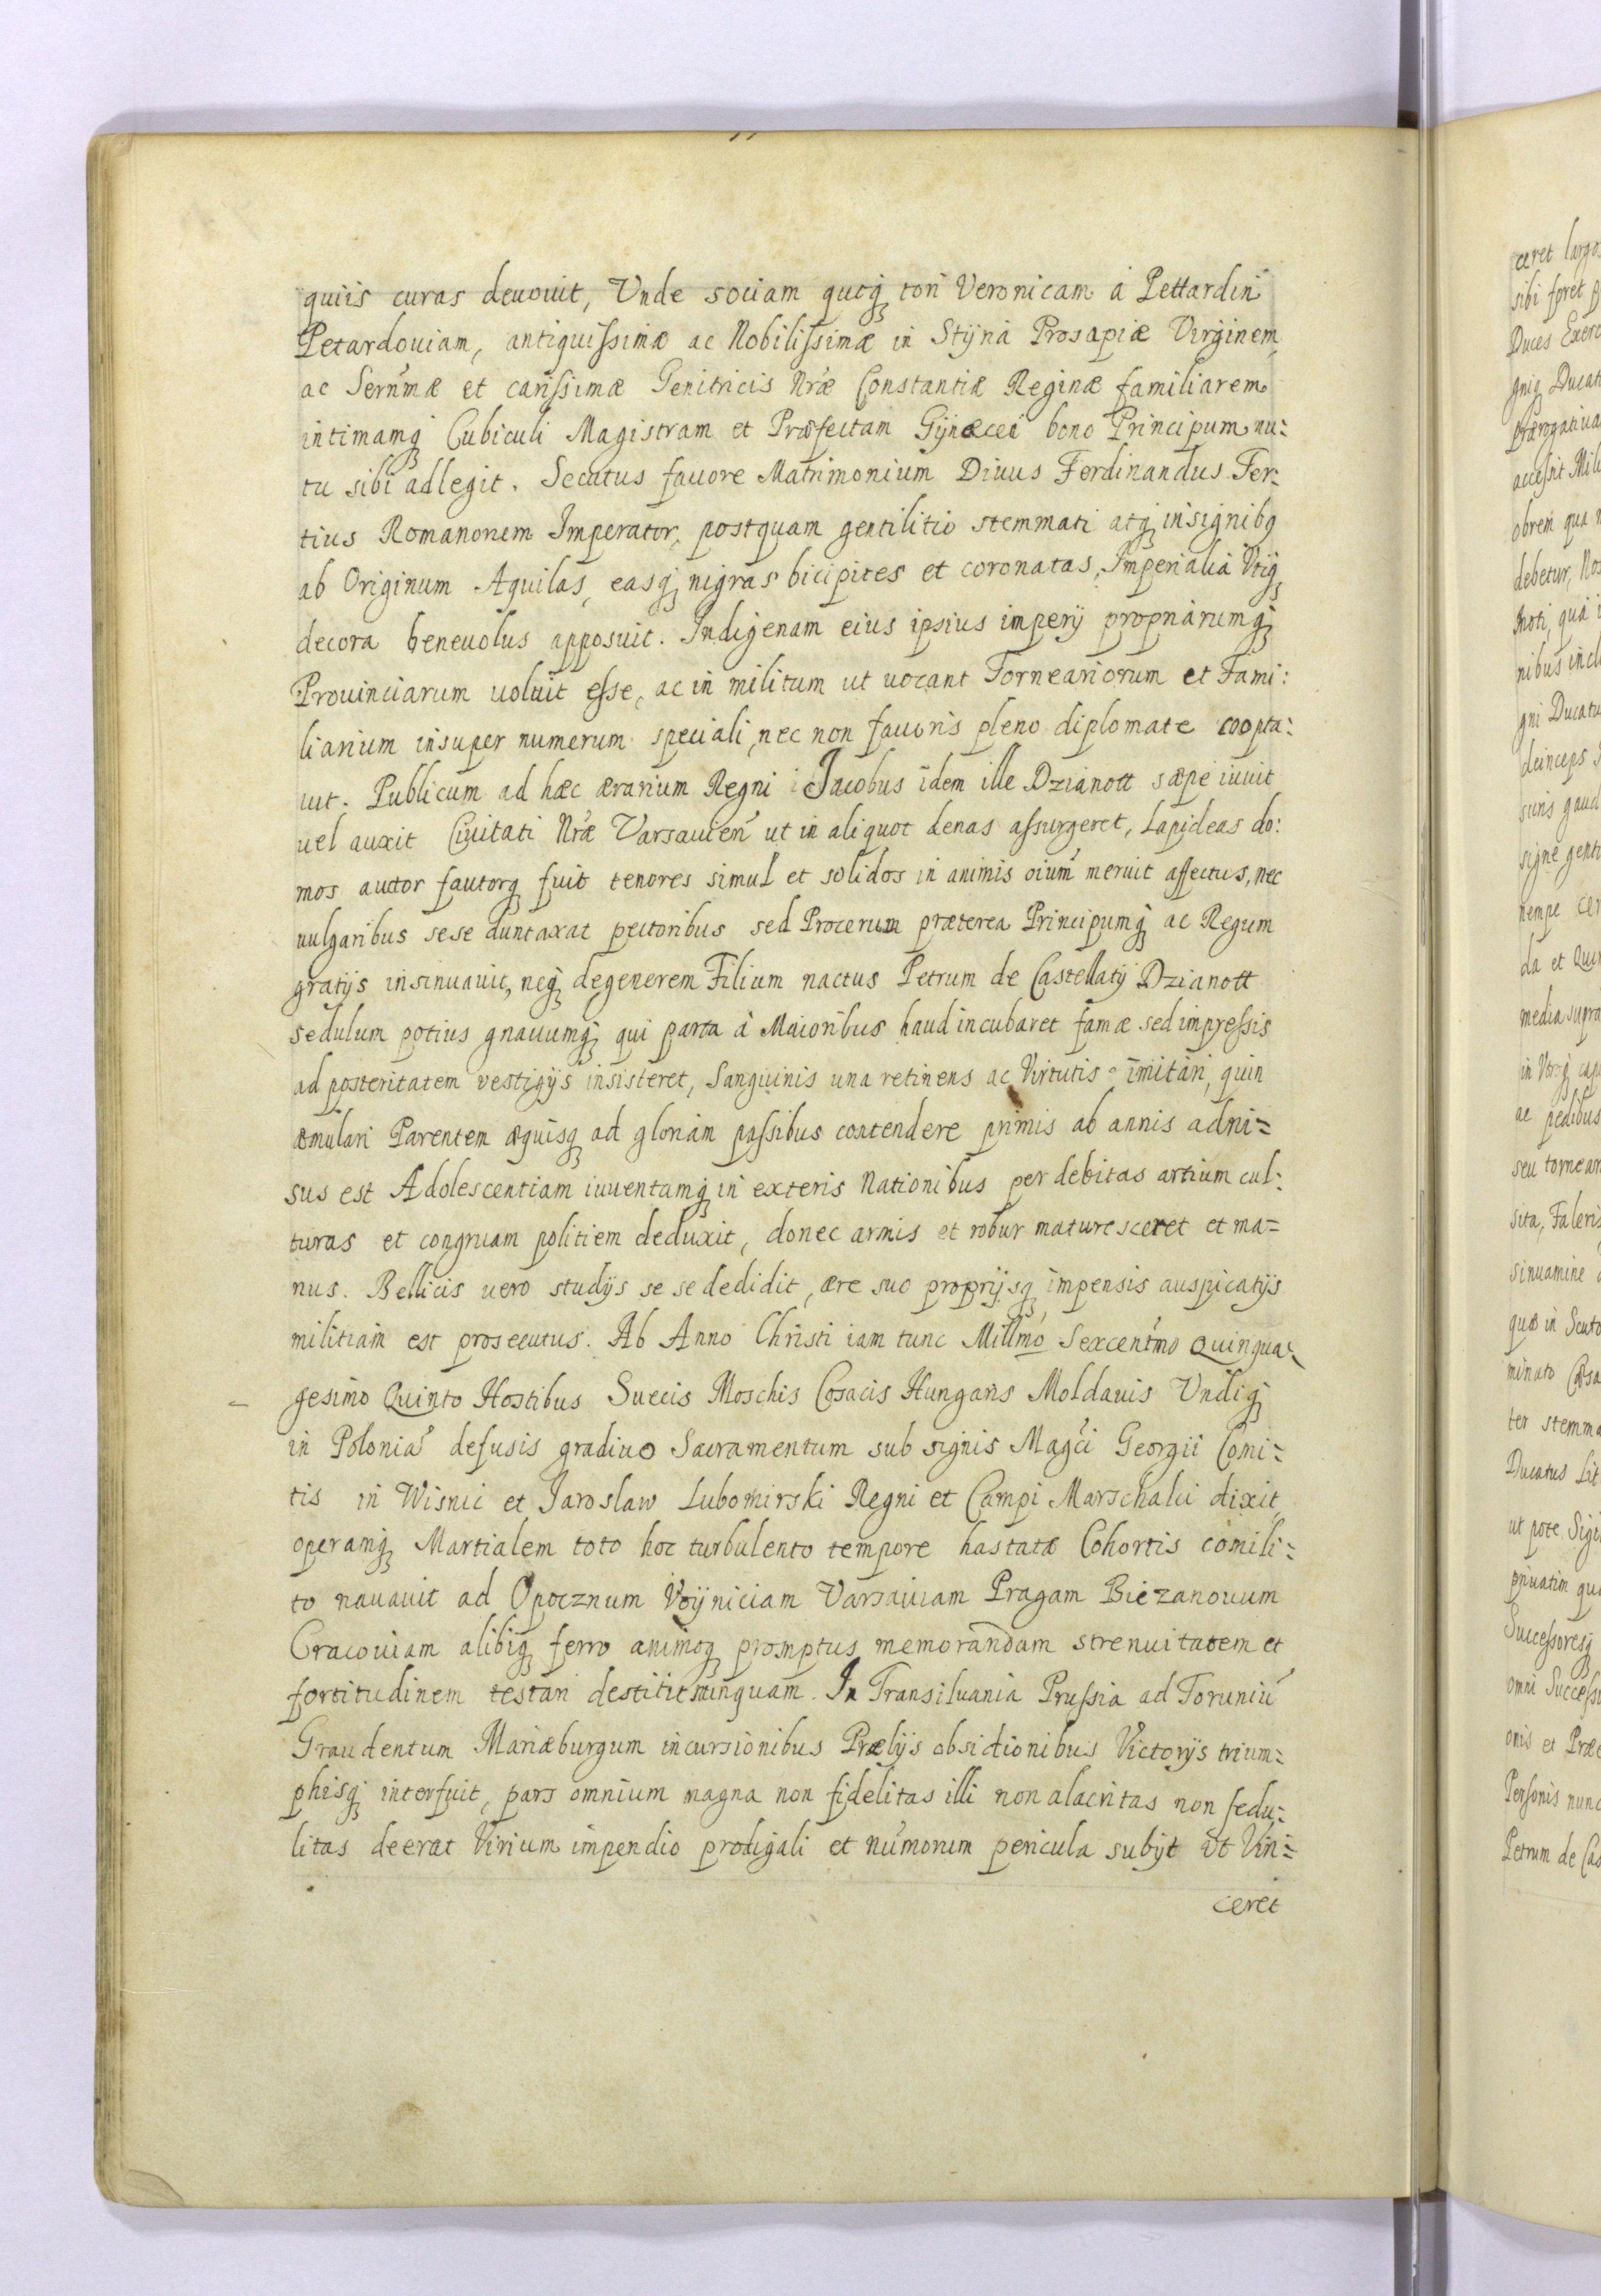 quiis curas deuouit, Vnde sociam quoq̨ tori Veronicam á Pettardin
Petardouiam, antiquissimæ ac Nobilissimæ in Stÿria Prosapiæ Virginem
ac Serñmæ et carissimæ Genitricis Nrǽ Constantiæ Reginæ familiarem
intimamq̨ Cubiculi Magistram et Præfectam Gÿnæcei bono Principum nu:
tu sibi adlegit. Secutus fauore Matrimonium Diuus Ferdinandus Ter:
tius Romanorum Imperator, postquam gentilitio stemmati atq̨ insignibq
ab Originum Aquilas, easq̨ nigras bicipites et coronatas, Imperialia Vtiq̨
decora beneuolus apposuit. Indigenam eius ipsius imperÿ propriarumq̨
Prouinciarum uoluit esse, ac in militum ut uocant Torneariorum et Fami:
liarium insuper numerum speciali, nec non fauoris pleno diplomate coopta:
uit. Publicum ad hæc ærarium Regni Jacobus idem ille Dzianott sæpe iuuit
uel auxit Ciuitati Nrǽ Varsauień ut in aliquot denas assurgeret, Lapideas do:
mos auctor fautorq̨ fuit tenores simul et solidos in animis oium̃ meruit affectus, nec
uulgaribus sese duntaxat pectoribus sed Procerum præterea Principumq̨ ac Regum
gratÿs insinuauit, neq̨ degenerem Filium nactus Petrum de Castellatÿ Dzianott
sedulum potius gnauumq̨ qui parta á Maioribus haud incubaret famæ sed impressis
ad posteritatem vestigÿs insisteret, Sanguinis una retinens ac Virtutis imitari, quin
æmulari Parentem æquisq̨ ad gloriam passibus contendere primis ab annis adni=
sus est Adolescentiam iuuentamq̨ in exteris Nationibus per debitas artium cul:
turas et congruam politiem deduxit, donec armis et robur maturesceret et ma=
nus. Bellicis uero studÿs se se dedidit, ære suo proprÿsq̨ impensis auspicatÿs
militiam est prosecutus. Ab Anno Christi iam tunc Millmó Sexcentḿo Quinqua=
gesimo Quinto Hostibus Suecis Moschis Cosacis Hungaris Moldauis Vndiq̨
in Poloniá defusis gradiuo Sacramentum sub signis Magći Georgii Comi=
tis in Wisnic et Jaroslaw Lubomirski Regni et Campi Marschalci dixit
operamq̨ Martialem toto hoc turbulento tempore hastatæ Cohortis comili=
to nauauit ad Opocznum Voÿniciam Varsauiam Pragam Biezanouum
Cracouiam alibiq̨ ferro animoq̨ promptus memorandam strenuitatem et
fortitudinem testari destitit nunquam. In Transiluania Prussia ad Toruniú
Graudentum Mariæburgum incursionibus Prælÿs obsidionibus Victorÿs trium=
phisq̨ interfuit, pars omnium magna non fidelitas illi non alacritas non sedu=
litas deerat Virium impendio prodigali et nuḿorum pericula subÿt Vt Vin=
ceret